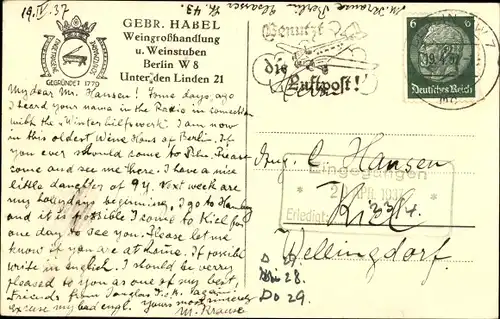 19. IV. 37
GEBR. HABEL
Weingroßhandlung
u. Weinstuben
Berlin W 8
Unter den Linden 21
GEGRÜNDET 1779
M. Krause Berlin
43.
Benutzt
die
Luftpost!
6
Deutsches Reich
My dear Mr. Hansen! Some days ago
I heard your name in the Radio in connection
with the "Winterhilfswerk". I am now
in this oldest Wine Hans of Berlin. If
you ever should come to Bln. Please
come and see me there. I have a nice
little daughter of 9 y. Next week are
my hollydays beginning, I go to Hamburg
and it is possible I come to Kiel for
one day to see you. Please let me
know if you are at home. If possible
write in english. I should be verry
pleased to you as one of my best
Friends from Douglas
excuse my bad engl. Yours most sincerely
M. Krause
Ing. C. Hansen
Eingegangen
APR. 1937
Erledigt
Kiel
Wellingdorf.
28.
Do 29.